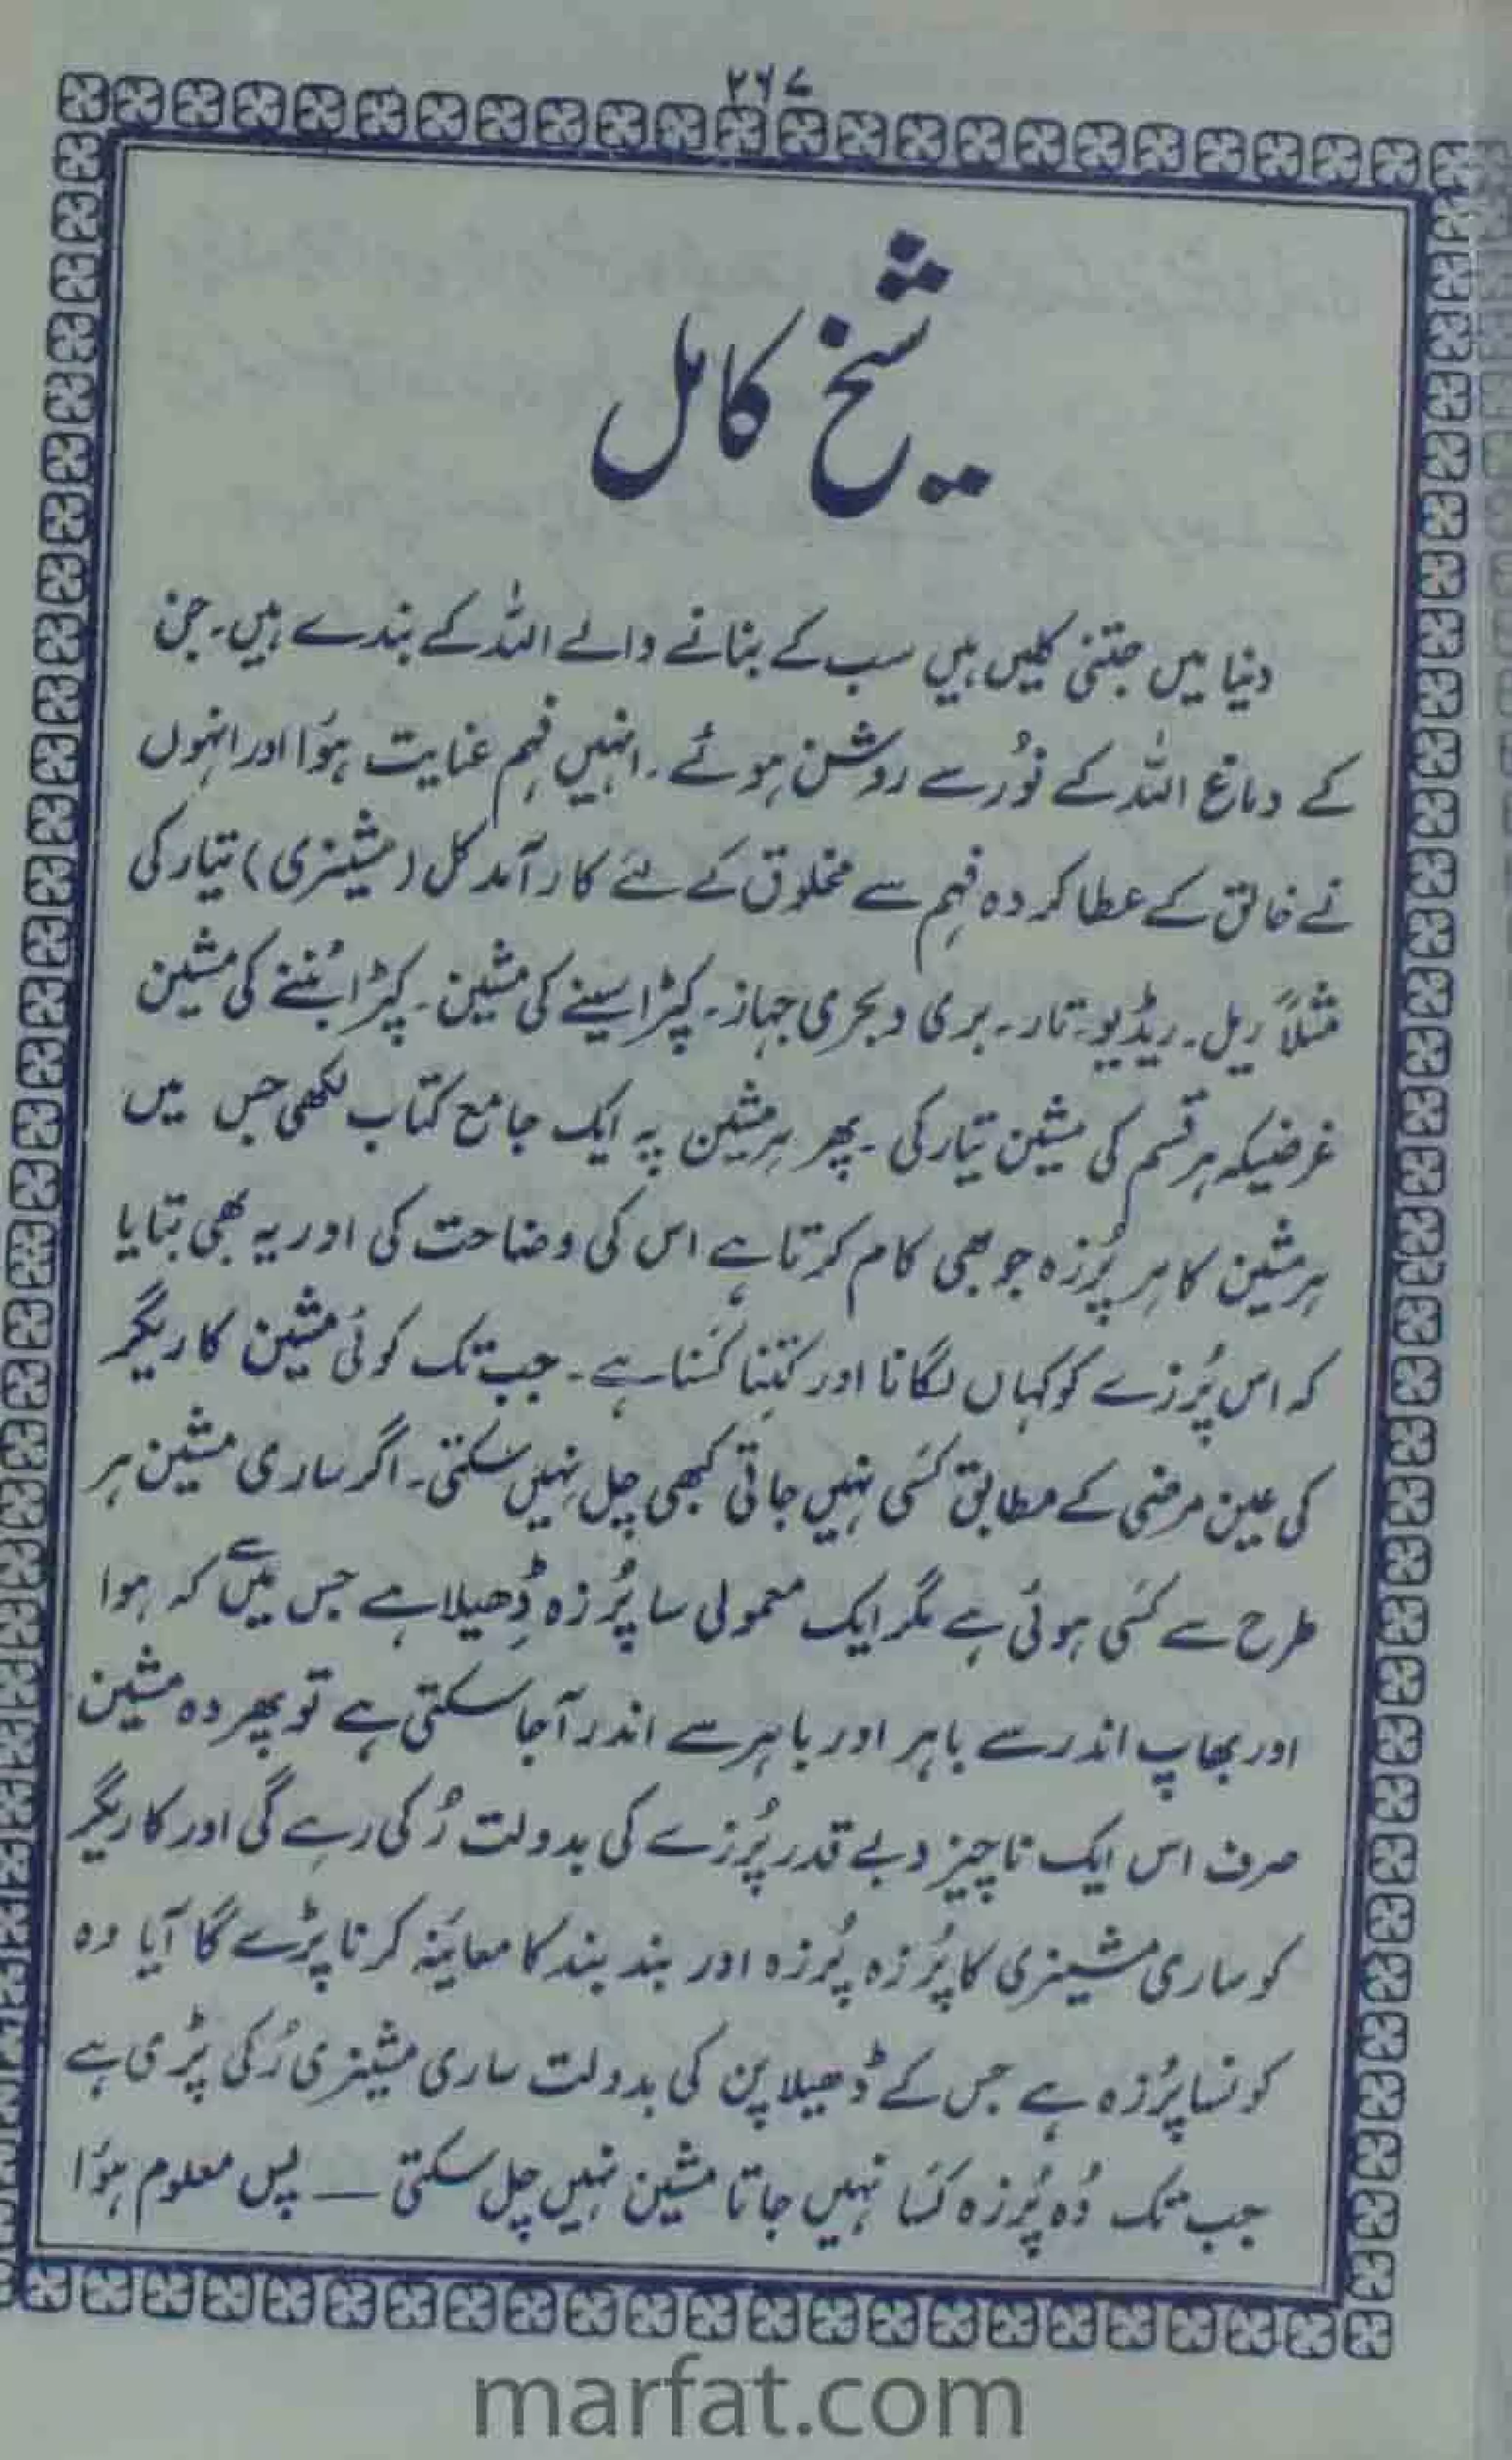 ۲۶۷
شیخ کامل
دنیا میں جتنی کلیں ہیں سب کے بنانے والے اللہ کے بندے ہیں۔ جن
کے دماغ اللہ کے نُور سے روشن ہوئے۔ انہیں فہم عنایت ہوَا اور انہوں
نے خالق کے عطا کردہ فہم سے مخلوق کے لئے کارآمد کل (مشینری) تیار کی
مثلاً ریل۔ ریڈیو۔ تار۔ بری و بحری جہاز۔ کپڑا سینے کی مشین۔ کپڑا بُننے کی مشین
غرضیکہ ہر قسم کی مشین تیار کی۔ پھر ہر مشین پہ ایک جامع کتاب لکھی جس میں
ہر مشین کا ہر پُرزہ جو بھی کام کرتا ہے اس کی وضاحت کی اور یہ بھی بتایا
کہ اس پُرزے کو کہاں لگانا اور کتنا کَسنا ہے۔ جب تک کوئی مشین کاریگر
کی عین مرضی کے مطابق کَسی نہیں جاتی کبھی چل نہیں سکتی۔ اگر ساری مشین ہر
طرح سے کَسی ہوئی ہے مگر ایک معمولی سا پُرزہ ڈِھیلا ہے جس میں سے کہ ہوا
اور بھاپ اندر سے باہر اور باہر سے اندر آ جا سکتی ہے تو پھر وہ مشین
صرف اس ایک ناچیز و بے قدر پُرزے کی بدولت رُکی رہے گی اور کاریگر
کو ساری مشینری کا پُرزہ پُرزہ اور بند بند کا معاینہ کرنا پڑے گا آیا وہ
کونسا پُرزہ ہے جس کے ڈھیلا پن کی بدولت ساری مشینری رُکی پڑی ہے
جب تک وُہ پُرزہ کَسا نہیں جاتا مشین نہیں چل سکتی — پس معلوم ہوَا
marfat.com